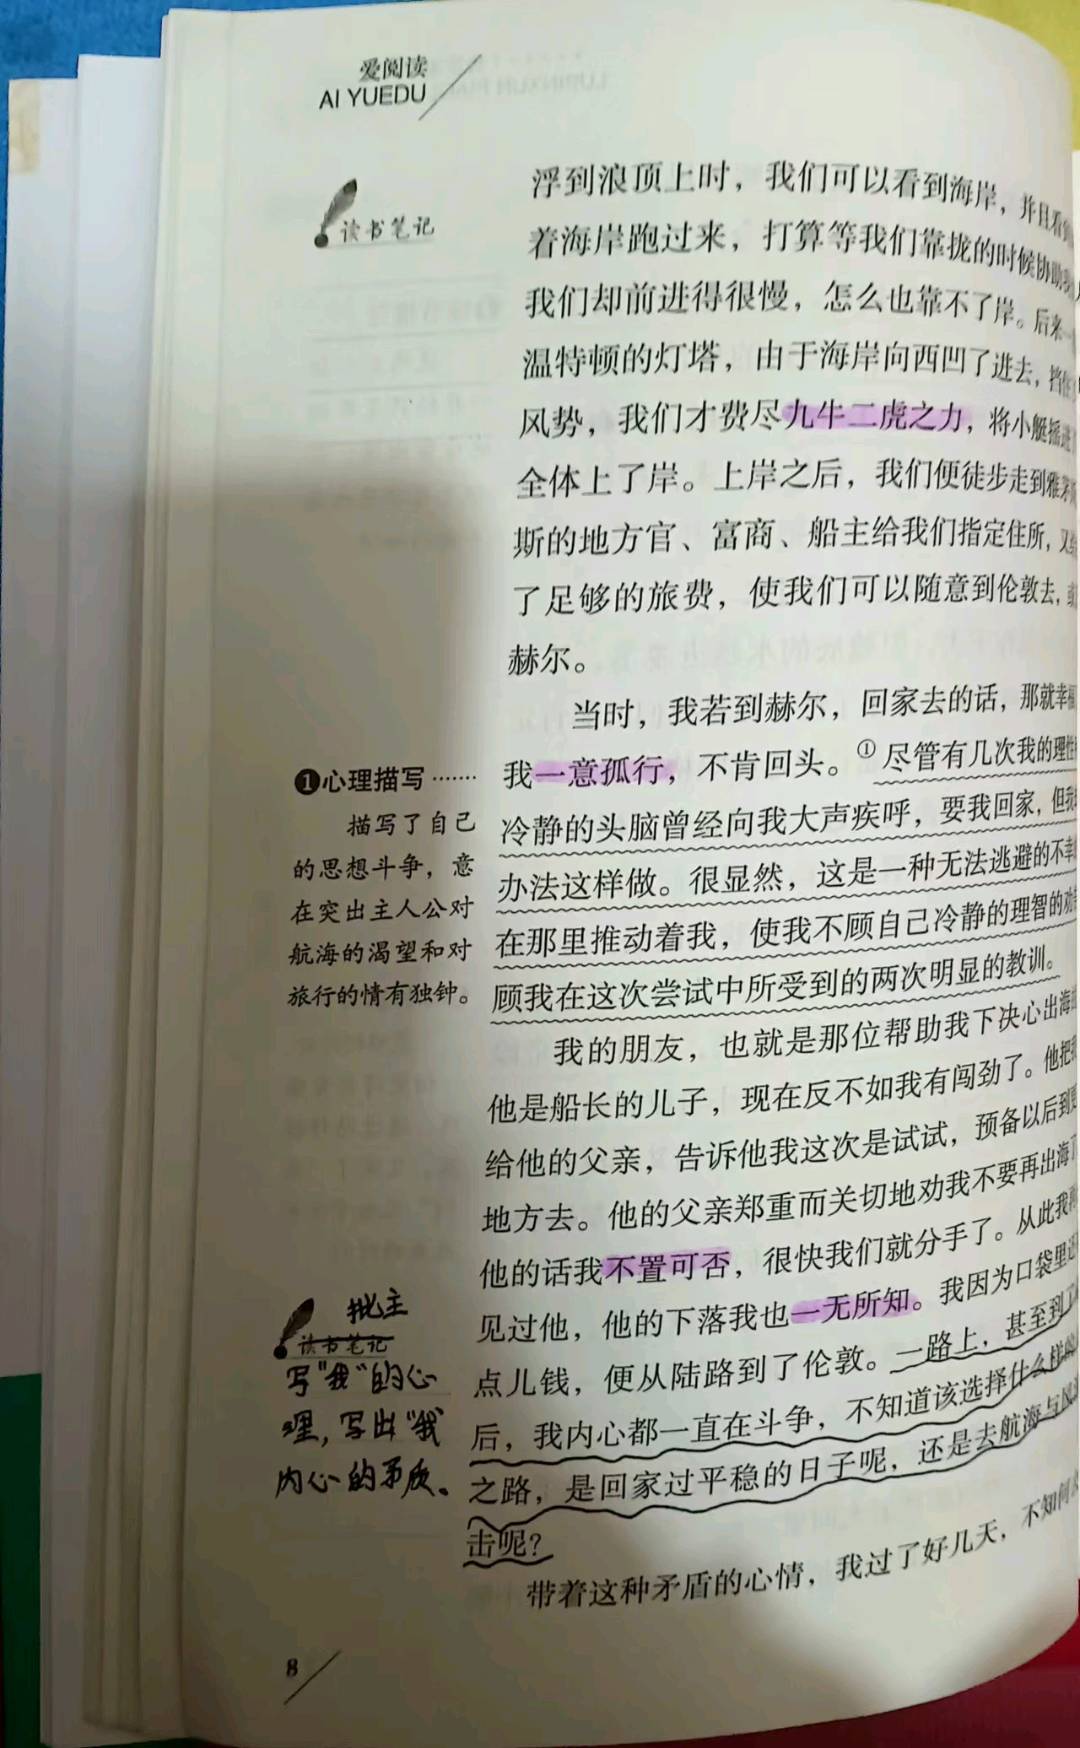 爱阅读
AI YUEDU
读书笔记
浮到浪顶上时，我们可以看到海岸，并且看
着海岸跑过来，打算等我们靠拢的时候协助
我们却前进得很慢，怎么也靠不了岸。后来一
温特顿的灯塔，由于海岸向西凹了进去，挡住
风势，我们才费尽九牛二虎之力，将小艇摇进
全体上了岸。上岸之后，我们便徒步走到雅茅
斯的地方官、富商、船主给我们指定住所，又给
了足够的旅费，使我们可以随意到伦敦去，或
赫尔。
当时，我若到赫尔，回家去的话，那就幸福
我一意孤行，不肯回头。①尽管有几次我的理性
冷静的头脑曾经向我大声疾呼，要我回家，但我
办法这样做。很显然，这是一种无法逃避的不幸
在那里推动着我，使我不顾自己冷静的理智的劝
顾我在这次尝试中所受到的两次明显的教训。
❶心理描写……
描写了自己
的思想斗争，意
在突出主人公对
航海的渴望和对
旅行的情有独钟。
我的朋友，也就是那位帮助我下决心出海
他是船长的儿子，现在反不如我有闯劲了。他把我
给他的父亲，告诉他我这次是试试，预备以后到更
地方去。他的父亲郑重而关切地劝我不要再出海了
他的话我不置可否，很快我们就分手了。从此我再
见过他，他的下落我也一无所知。我因为口袋里还
点儿钱，便从陆路到了伦敦。一路上，甚至到了
后，我内心都一直在斗争，不知道该选择什么样的
之路，是回家过平稳的日子呢，还是去航海与风
击呢？
带着这种矛盾的心情，我过了好几天，不知何
批主
读书笔记
写"我"的心
理，写出"我
内心的矛盾。
8